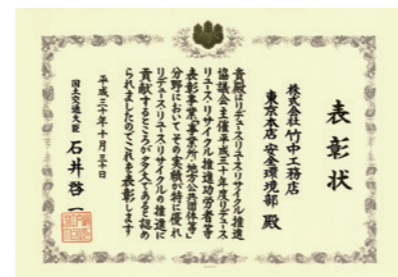 表彰状
株式会社竹中工務店
東京本店 安全環境部 殿
貴殿はリデュース・リユース・リサイクル推進
協議会主催平成三十年度リデュース・
リユース・リサイクル推進功労者等
表彰事業「事業所・地方公共団体等」
分野においてその実績が特に優れ
リデュース・リユース・リサイクルの推進に
貢献するところが多大であると認め
られましたのでこれを表彰します
平成三十年十月三十日
国土交通大臣 石井啓一